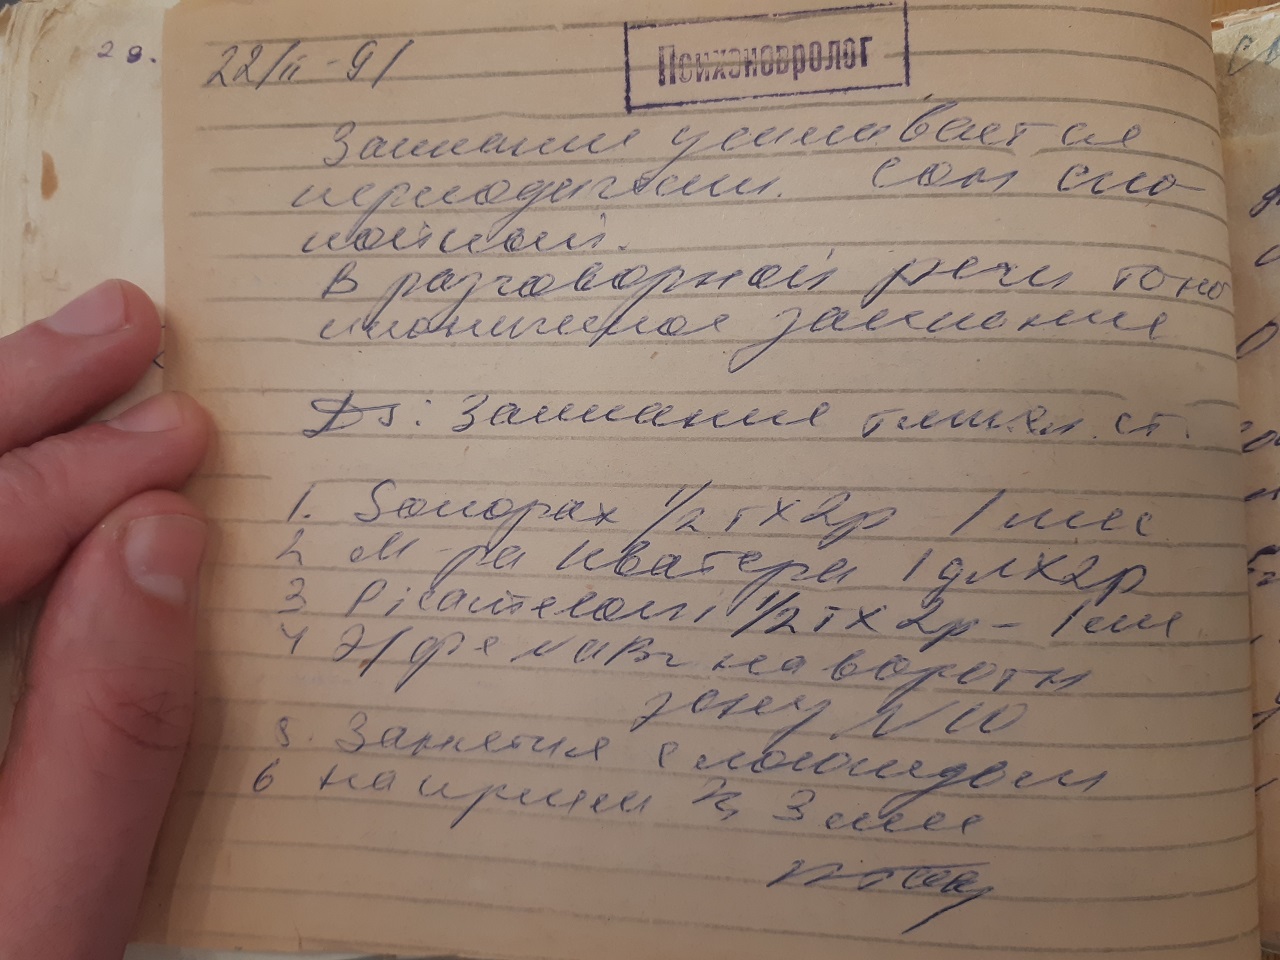 29.
22/II-91 Психоневролог
Заикание усиливается
периодически. Сон спо-
койный.
В разговорной речи тоно
клоническое заикание
Ds: Заикание тяжел. ст.
1. Sonopax 1/2 т х 2р 1 мес
2 М-ра Кватера 1 дл х 2р
3 Picameloni 1/2 т х 2р - 1 мес
4 Э/ф с NaBr на воротн
зону N 10
5. Занятия с логопедом
6 на прием ч/з 3 мес